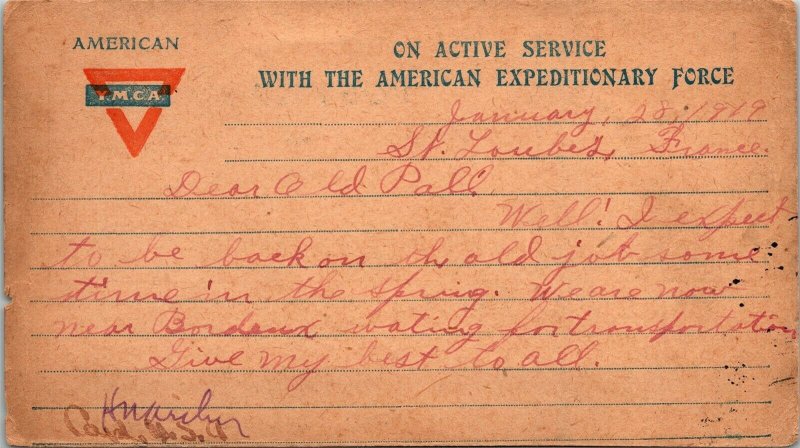 AMERICAN
Y.M.C.A
ON ACTIVE SERVICE
WITH THE AMERICAN EXPEDITIONARY FORCE
January, 28, 1919
St. Loubes, France.
Dear Old Pall.
Well! I expect
to be back on th old job some
time in the spring. We are now
near Bordeux wating for transportation
Give my best to all.